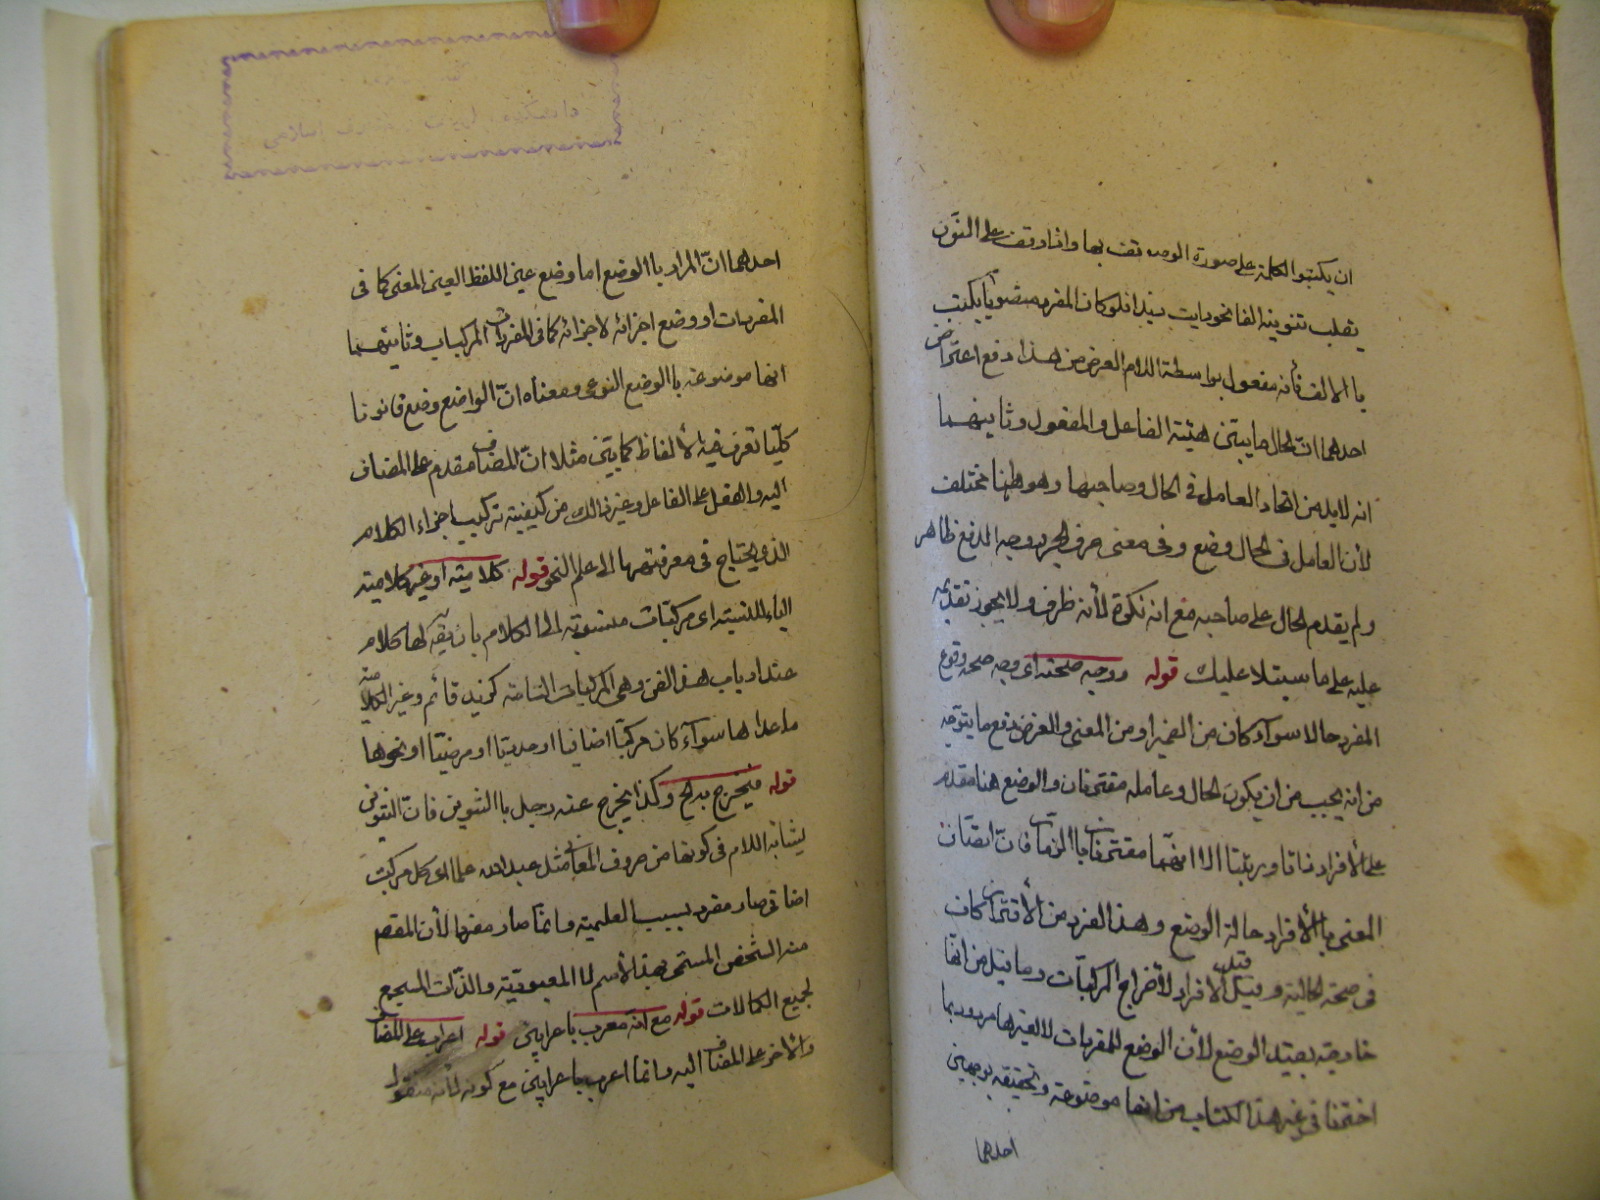 ان يكتبوا الكلمة على صورة الوصه تقف بها واذا وقف على النون
يقلب تنوينه الفا نحو رايت زيدا فلو كان المفرد منصوبا يكتب
بالالف فأنه مفعول بواسطة اللام الغرض من هذا دفع اعتراض
احدهما انّ الحال ما يبيّن هيئة الفاعل والمفعول وثانيهما
انه لابد من اتحاد العامل فى الحال وصاحبها وهو ههنا مختلف
لأن العامل فى الحال وضع وفى معنى حرف الجر وجه الدفع ظاهر
ولم يقدم الحال على صاحبه مع انه نكرة لأنه ظرف ولا يجوز تقديمه
عليه على ما سيتلا عليك قوله ووجه صحته اى وجه صحة وقوع
المفرد حالا سوآء كان من الضمير او من المعنى والغرض دفع ما يتوهّم
من انه يجب من ان يكون الحال وعامله مقترنان والوضع هنا مقدم
على الأفراد ذاتا ورتبتا الا انهما مقترنان بالزمان فانّ اتصاف
المعنى بالأفراد حالة الوضع وهذا القدر من الأقتران كاف
فى صحة الحالية وقيل قيد الافراد لأخراج المركبات وما قيل من انّها
خارجة بقيد الوضع لأن الوضع للمفردات لا لغيرها مردود بما
اخترنا فى غير هذا الكتاب من انها موضوعة وتحقيقه بوجهين
احدهما
احدهما انّ المراد باالوضع اما وضع عين اللفظ العين المعنى كما فى
المفردات او وضع اجزائه لاجزائه كما فى المركباب وثانيهما
انها موضوعة باالوضع النوعى ومعناه انّ الواضع وضع قانونا
كلّيا تعرف فيه الألفاظ كما يبيّن مثلا انّ المضاف مقدم على المضاف
اليه والفعل على الفاعل وغير ذالك من كيفيته تركيب اجزاء الكلام
الذى يحتاج فى معرفتها الى علم النحو قوله كلاميته او غير كلاميته
الياء للنسبته اى مركبات منسوبة الى الكلام بان يقه لها كلام
عند ارباب هذ الفن وهى المركبات التامته كزيد قائم وغير الكلامته
ما عداها سوآء كان مركبا اضافيا او حديثا او مزجيّا او نحوها
قوله فيخرج به الخ وكذا يخرج عنه رجل باالتنوين فانّ التنوين
يشابه اللام فى كونها من حروف المعانى مثل عبد الله علما اى كل مركب
اضافى صار مفرد بسبب العلميته وانما صار مفردا لأن المقصه
منه الشخص المسمّى بهذ الأسم لا المعبوديّته والذّات المسجمع
لجميع الكمالات قوله مع انه معرب باعرابين قوله اعراب على المضاف
والأخر على المضاف اليه وانما اعرب باعرابين مع كونه لأنه منقول